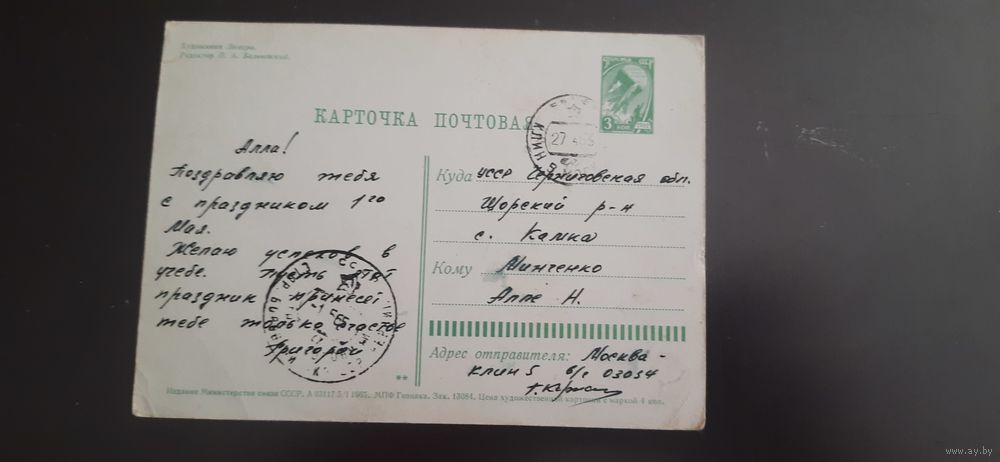 Художники Лесегри.
КАРТОЧКА ПОЧТОВАЯ
3 коп
КЛИН
27
Алла!
Поздравляю тебя
с праздником 1го
Мая.
Желаю успехов в
учебе. Пусть этот
праздник принесет
тебе только счастье
Григорий
Куда УССР Черниговская обл.
Щорский р-н
с. Камка
Кому Минченко
Алле Н.
Адрес отправителя: Москва -
Клин 5 в/ч 03054
**
Издание Министерства связи СССР. 1965. МПФ Гознака. Зак. 13084. Цена художественной карточки с маркой 4 коп.
www.ay.by